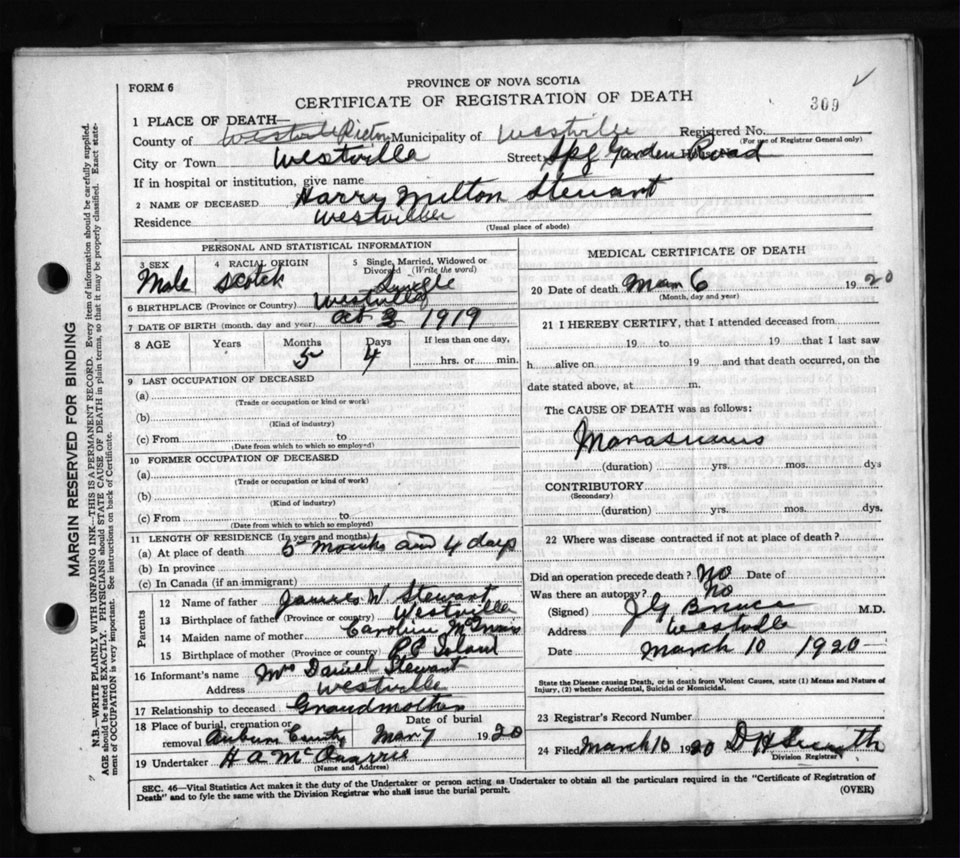 FORM 6
PROVINCE OF NOVA SCOTIA
CERTIFICATE OF REGISTRATION OF DEATH
309
1 PLACE OF DEATH—
County of Pictou Municipality of Westville Registered No.
(For use of Registrar General only)
City or Town Westville Street Spg Garden Road
If in hospital or institution, give name
2 NAME OF DECEASED Harry Milton Stewart
Residence Westville
(Usual place of abode)
PERSONAL AND STATISTICAL INFORMATION
3 SEX Male
4 RACIAL ORIGIN Scotch
5 Single, Married, Widowed or Divorced (Write the word) Single
6 BIRTHPLACE (Province or Country) Westville
7 DATE OF BIRTH (month, day and year) Oct 1919
8 AGE Years Months 5 Days 4 If less than one day, hrs. or min.
9 LAST OCCUPATION OF DECEASED
(a)
(Trade or occupation or kind or work)
(b)
(Kind of industry)
(c) From to
(Date from which to which so employed)
10 FORMER OCCUPATION OF DECEASED
(a)
(Trade or occupation or kind of work)
(b)
(Kind of industry)
(c) From to
(Date from which to which so employed)
11 LENGTH OF RESIDENCE (In years and months)
(a) At place of death 5 months and 4 days
(b) In province
(c) In Canada (if an immigrant)
Parents
12 Name of father James W Stewart
13 Birthplace of father (Province or country) Westville
14 Maiden name of mother Caroline
15 Birthplace of mother (Province or country) P E Island
16 Informant's name Mrs Daniel Stewart
Address Westville
17 Relationship to deceased Grandmother
18 Place of burial, cremation or removal Auburn Date of burial Mar 7 1920
19 Undertaker H A McQuarrie
(Name and Address)
MEDICAL CERTIFICATE OF DEATH
20 Date of death Mar 6 1920
(Month, day and year)
21 I HEREBY CERTIFY, that I attended deceased from
19 to 19 that I last saw
h alive on 19 and that death occurred, on the
date stated above, at m.
The CAUSE OF DEATH was as follows:
(duration) yrs. mos. dys
CONTRIBUTORY
(Secondary)
(duration) yrs. mos. dys.
22 Where was disease contracted if not at place of death?
Did an operation precede death? No Date of
Was there an autopsy? No
(Signed) J G Bruce M.D.
Address Westville
Date March 10 1920
State the Disease causing Death, or in death from Violent Causes, state (1) Means and Nature of Injury, (2) whether Accidental, Suicidal or Homicidal.
23 Registrar's Record Number
24 Filed March 10 1920 D H
Division Registrar
SEC. 46—Vital Statistics Act makes it the duty of the Undertaker or person acting as Undertaker to obtain all the particulars required in the "Certificate of Registration of
Death" and to fyle the same with the Division Registrar who shall issue the burial permit. (OVER)
MARGIN RESERVED FOR BINDING
N.B.—WRITE PLAINLY WITH UNFADING INK—THIS IS A PERMANENT RECORD. Every item of information should be carefully supplied.
AGE should be stated EXACTLY. PHYSICIANS should STATE CAUSE OF DEATH in plain terms, so that it may be properly classified. Exact statement of OCCUPATION is very important. See instructions on back of Certificate.